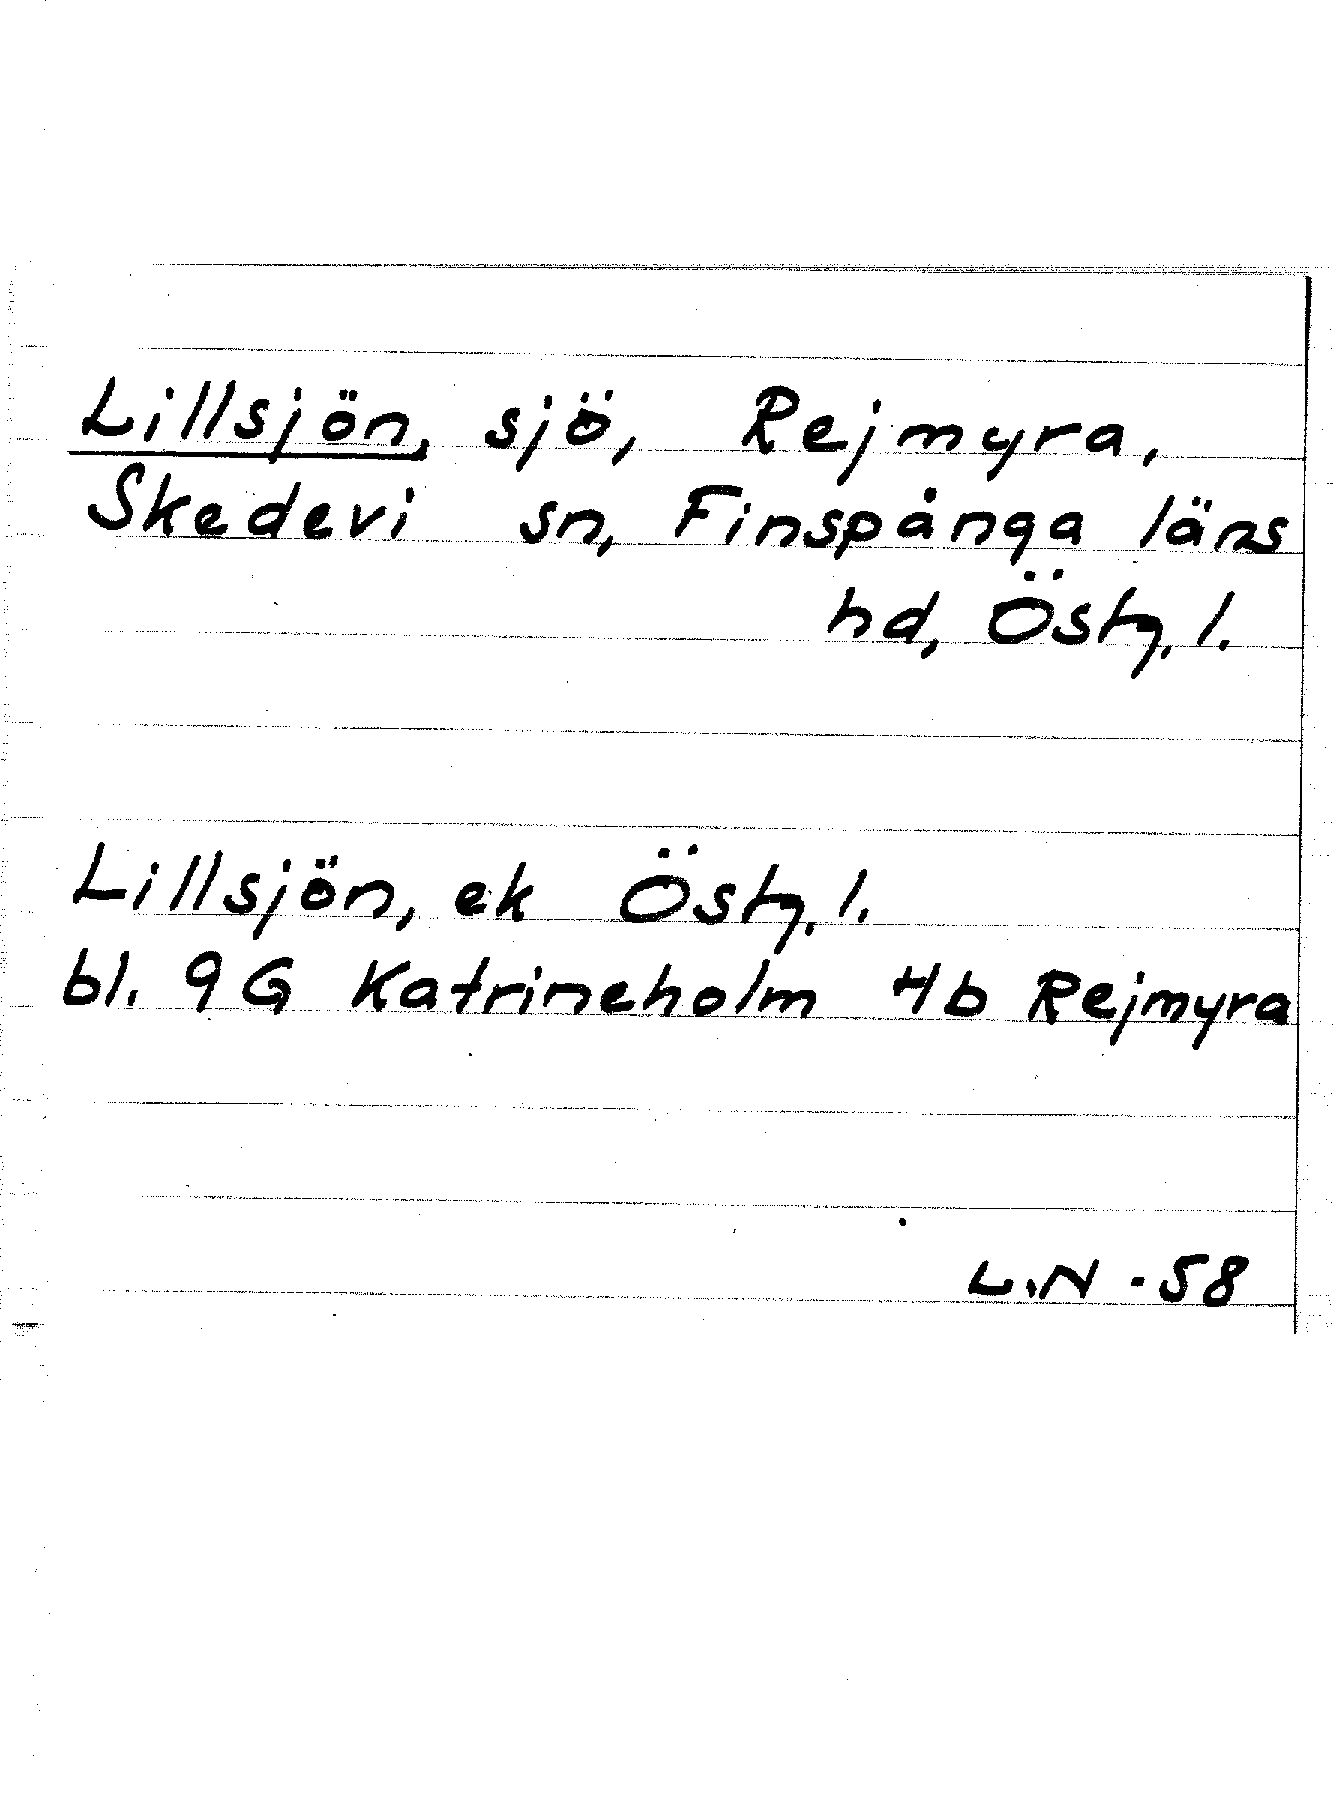 Lillsjön, sjö, Rejmyra,
Skedevi sn, Finspånga läns
hd, Östg. l.
Lillsjön, ek Östg. l.
bl. 9G Katrineholm 4b Rejmyra
L.N -58